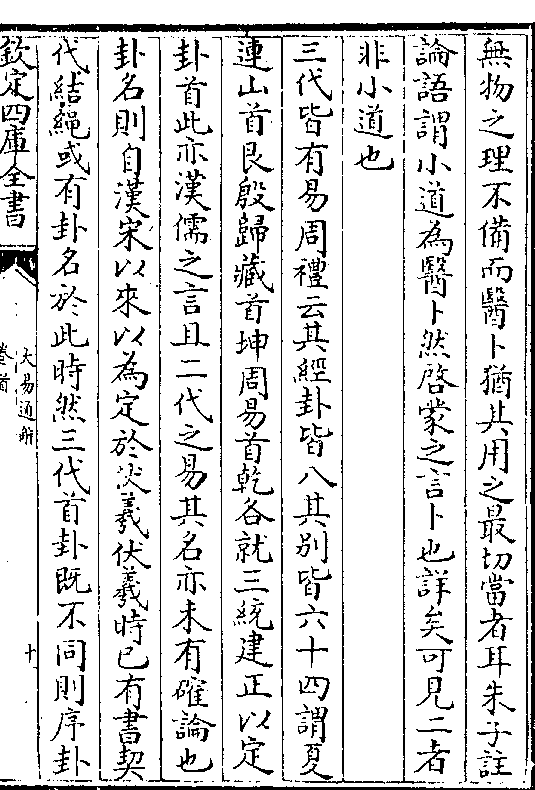 無物之理不備而醫卜猶其用之最切當者耳朱子註
論語謂小道為醫卜然啓蒙之言卜也詳矣可見二者
非小道也
三代皆有易周禮云其經卦皆八其別皆六十四謂夏
連山首艮殷歸藏首坤周易首乾各就三統建正以定
卦首此亦漢儒之言且二代之易其名亦未有確論也
卦名則自漢宋以來以為定於伏羲伏羲時已有書契
代結繩或有卦名於此時然三代首卦既不同則序卦
欽定四庫全書
大易通解
卷首
十